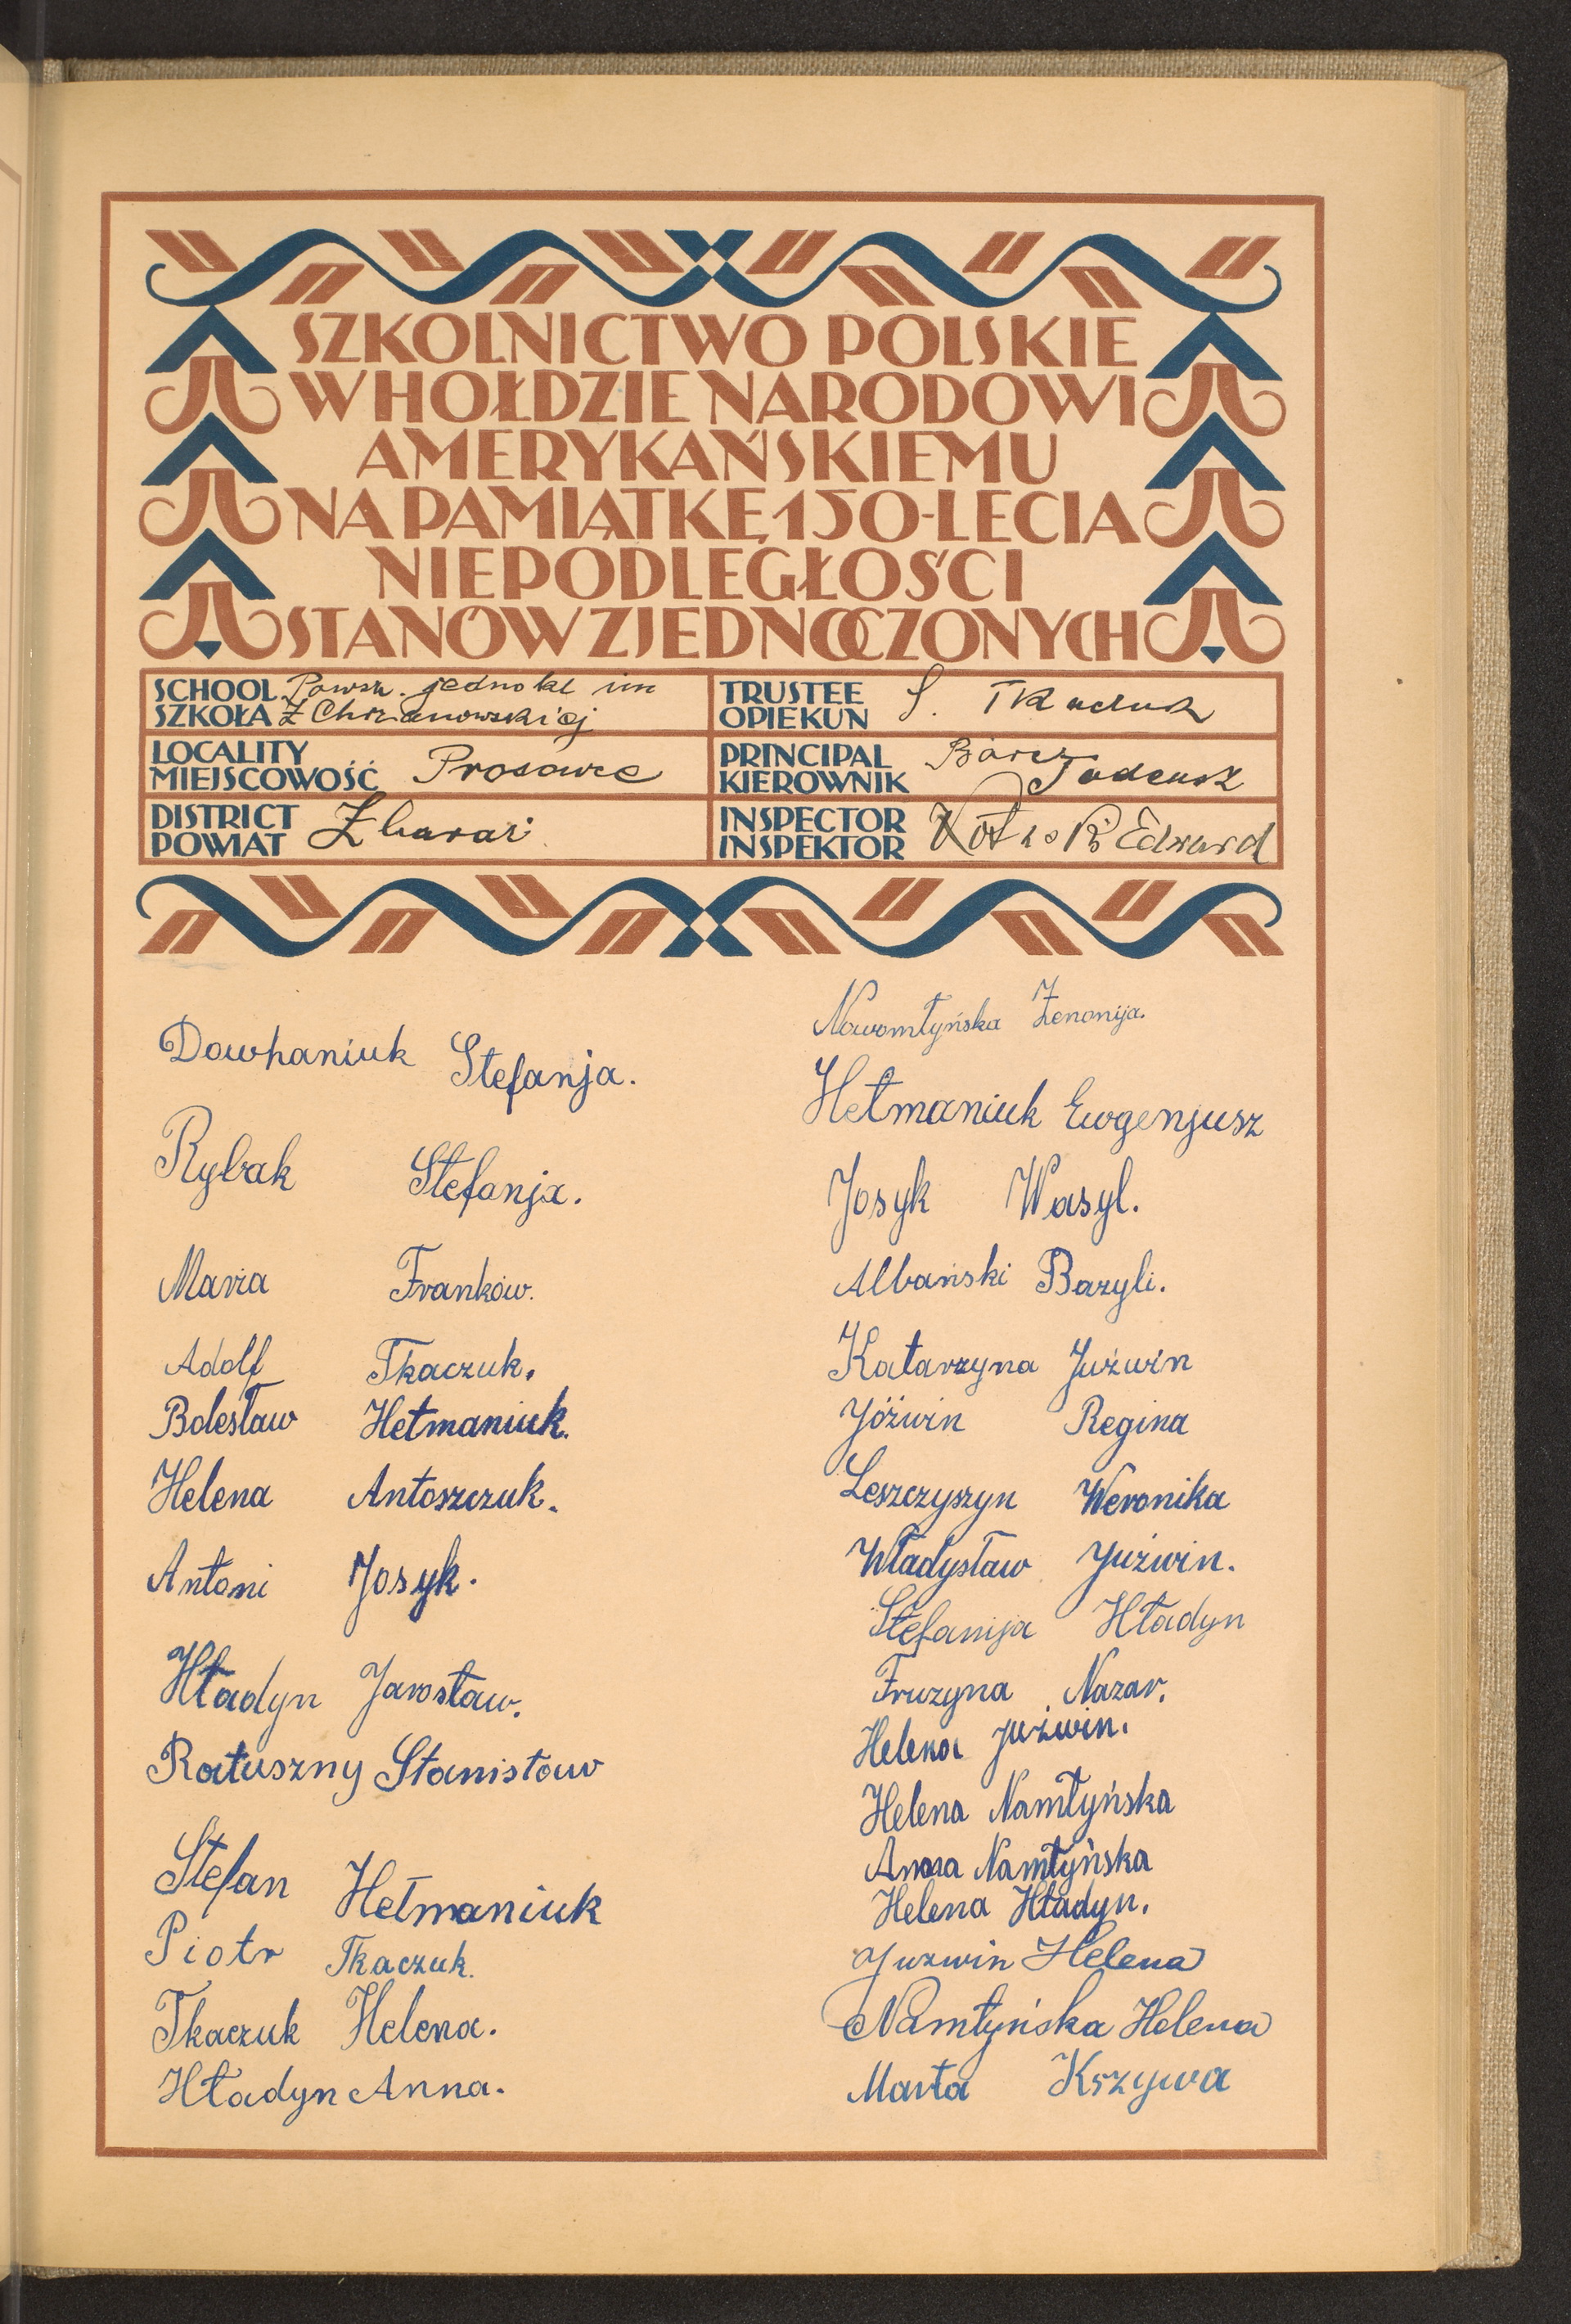 SZKOLNICTWO POLSKIE
W HOŁDZIE NARODOWI
AMERYKAŃSKIEMU
NA PAMIĄTKĘ 150-LECIA
NIEPODLEGŁOŚCI
STANÓW ZJEDNOCZONYCH
SCHOOL Powsz. jednokl im
SZKOŁA Z Chrzanowskiej
TRUSTEE
OPIEKUN S. Tkaczuk
LOCALITY
MIEJSCOWOŚĆ Prosowce
PRINCIPAL
KIEROWNIK Barcz Tadeusz
DISTRICT
POWIAT Zbaraż
INSPECTOR
INSPEKTOR Edward
Dowhaniuk Stefanja.
Rybak Stefanja.
Maria Franków.
Adolf Tkaczuk.
Bolesław Hetmaniuk.
Helena Antoszczuk.
Antoni Josyk.
Hładyn Jarosław.
Ratuszny Stanisław
Stefan Hetmaniuk
Piotr Tkaczuk.
Tkaczuk Helena.
Hładyn Anna.
Nowomłyńska Zenonija.
Hetmaniuk Ewgenjusz
Josyk Wasyl.
Albański Bazyli.
Katarzyna Juźwin
Jóźwin Regina
Leszczyszyn Weronika
Władysław Juźwin.
Stefanija Hładyn
Fruzyna Nazar.
Helena Juźwin.
Helena Namłyńska
Anna Namłyńska
Helena Hładyn.
Juzwin Helena
Namłyńska Helena
Marta Kszywa